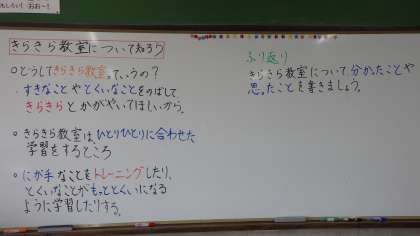 おお～!
きらきら教室について知ろう
○どうしてきらきら教室っていうの?
・すきなことやとくいなことをのばして
きらきらとかがやいてほしいから。
○きらきら教室は、ひとりひとりに合わせた
学習をするところ
○にが手なことをトレーニングしたり、
とくいなことがもっととくいになる
ように学習したりする。
ふり返り
きらきら教室について分かったことや
思ったことを書きましょう。